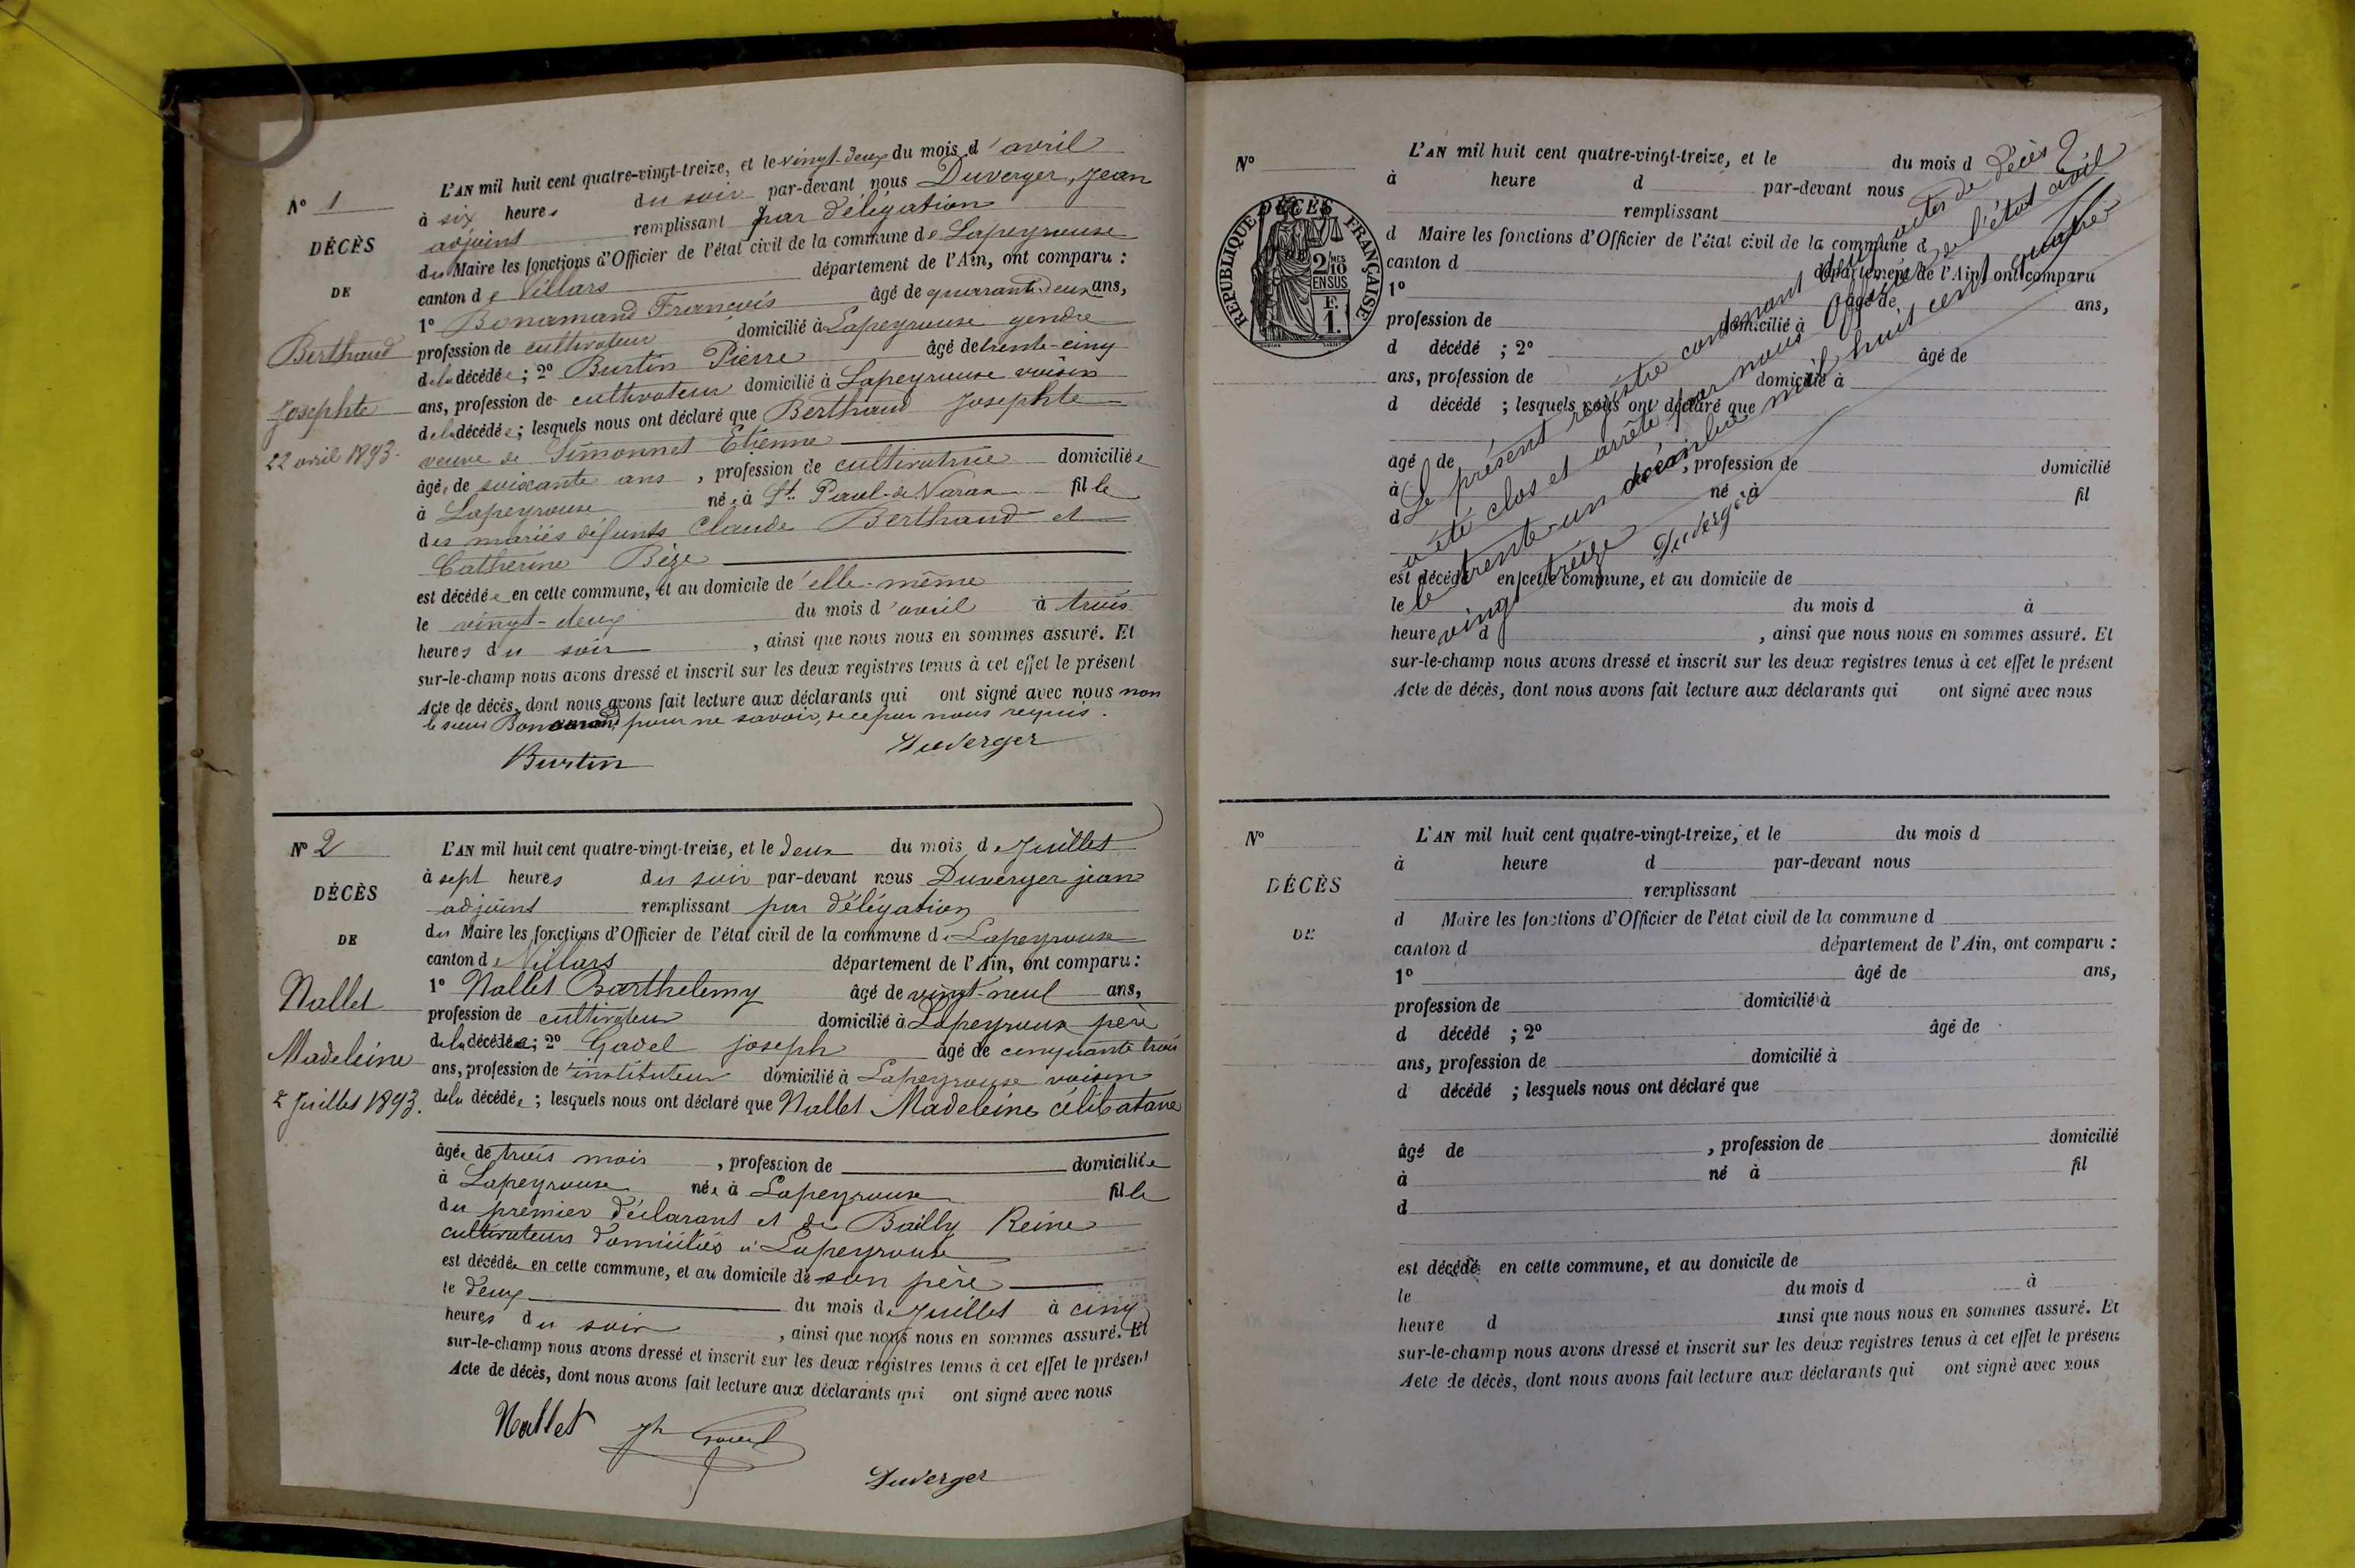 N° 1
DÉCÈS
DE
Berthaud
Josephte
22 avril 1893.
L'AN mil huit cent quatre-vingt-treize, et le vingt-deux du mois d'avril
à six heures du soir par-devant nous Duverger, Jean
adjoint remplissant par délégation
du Maire les fonctions d'Officier de l'état civil de la commune de Lapeyrouse
canton de Villars département de l'Ain, ont comparu :
1° Bonamand François âgé de quarante-deux ans,
profession de cultivateur domicilié à Lapeyrouse gendre
de la décédée ; 2° Burtin Pierre âgé de trente-cinq
ans, profession de cultivateur domicilié à Lapeyrouse voisin
de la décédée ; lesquels nous ont déclaré que Berthaud Josephte
veuve de Simonnet Etienne
âgée de soixante ans , profession de cultivatrice domiciliée
à Lapeyrouse née à St. Paul-de-Varax fille
des mariés défunts Claude Berthaud et
Catherine Bège
est décédée en cette commune, et au domicile de elle-même
le vingt-deux du mois d'avril à trois
heures du soir , ainsi que nous nous en sommes assuré. Et
sur-le-champ nous avons dressé et inscrit sur les deux registres tenus à cet effet le présent
Acte de décès, dont nous avons fait lecture aux déclarants qui ont signé avec nous non
le sieur Bonamand, pour ne savoir, de ce par nous requis.
Burtin Duverger
N° 2
DÉCÈS
DE
Nallet
Madeleine
2 Juillet 1893.
L'AN mil huit cent quatre-vingt-treize, et le deux du mois de Juillet
à sept heures du soir par-devant nous Duverger jean
adjoint remplissant par délégation
du Maire les fonctions d'Officier de l'état civil de la commune de Lapeyrouse
canton de Villars département de l'Ain, ont comparu :
1° Nallet Barthelemy âgé de vingt-neuf ans,
profession de cultivateur domicilié à Lapeyrouse père
de la décédée ; 2° Gavel joseph âgé de cinquante trois
ans, profession de instituteur domicilié à Lapeyrouse voisin
de la décédée ; lesquels nous ont déclaré que Nallet Madeleine célibataire
âgée de trois mois , profession de domiciliée
à Lapeyrouse née à Lapeyrouse fille
du premier déclarant et de Bailly Reine
cultivateurs domiciliés à Lapeyrouse
est décédée en cette commune, et au domicile de son père
le deux du mois de Juillet à cinq
heures du soir , ainsi que nous nous en sommes assuré. Et
sur-le-champ nous avons dressé et inscrit sur les deux registres tenus à cet effet le présent
Acte de décès, dont nous avons fait lecture aux déclarants qui ont signé avec nous
Nallet Jh Gavel
Duverger
N°
DÉCÈS
RÉPUBLIQUE FRANÇAISE
2 MES
10
EN SUS
F.
1.
L'AN mil huit cent quatre-vingt-treize, et le du mois d
à heure d par-devant nous
remplissant
d Maire les fonctions d'Officier de l'état civil de la commune d
canton d département de l'Ain, ont comparu
1° âgé de ans,
profession de domicilié à
d décédé ; 2° âgé de
ans, profession de domicilié à
d décédé ; lesquels nous ont déclaré que
âgé de , profession de domicilié
à né à fil
d
est décédé en cette commune, et au domicile de
le du mois d à
heure d , ainsi que nous nous en sommes assuré. Et
sur-le-champ nous avons dressé et inscrit sur les deux registres tenus à cet effet le présent
Acte de décès, dont nous avons fait lecture aux déclarants qui ont signé avec nous
Le présent registre contenant deux actes de décès
a été clos et arrêté par nous officier de l'état civil
le trente-un décembre mil huit cent quatre
vingt treize
Duverger
N°
DÉCÈS
DE
L'AN mil huit cent quatre-vingt-treize, et le du mois d
à heure d par-devant nous
remplissant
d Maire les fonctions d'Officier de l'état civil de la commune d
canton d département de l'Ain, ont comparu :
1° âgé de ans,
profession de domicilié à
d décédé ; 2° âgé de
ans, profession de domicilié à
d décédé ; lesquels nous ont déclaré que
âgé de , profession de domicilié
à né à fil
d
est décédé en cette commune, et au domicile de
le du mois d à
heure d ainsi que nous nous en sommes assuré. Et
sur-le-champ nous avons dressé et inscrit sur les deux registres tenus à cet effet le présent
Acte de décès, dont nous avons fait lecture aux déclarants qui ont signé avec nous